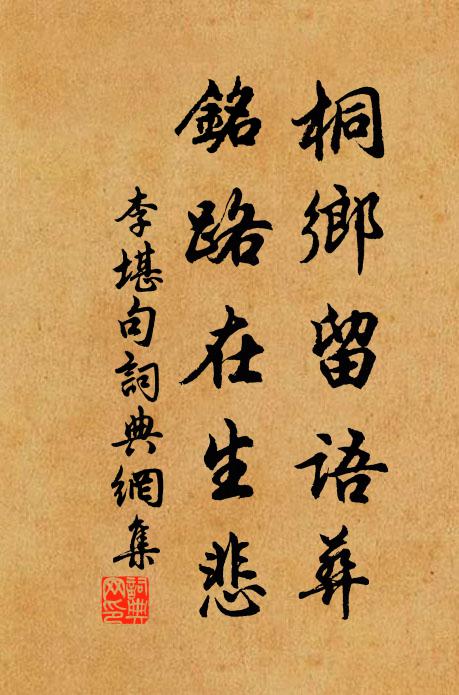 桐鄉留語葬
銘路在生悲
李堪句詞典網集
詞典
网印